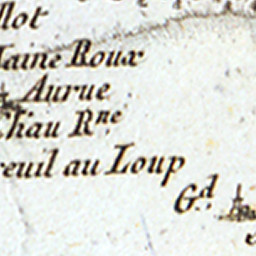 llot
Maine Roux
Aurue
Chau R.ne
reuil au Loup
G.d